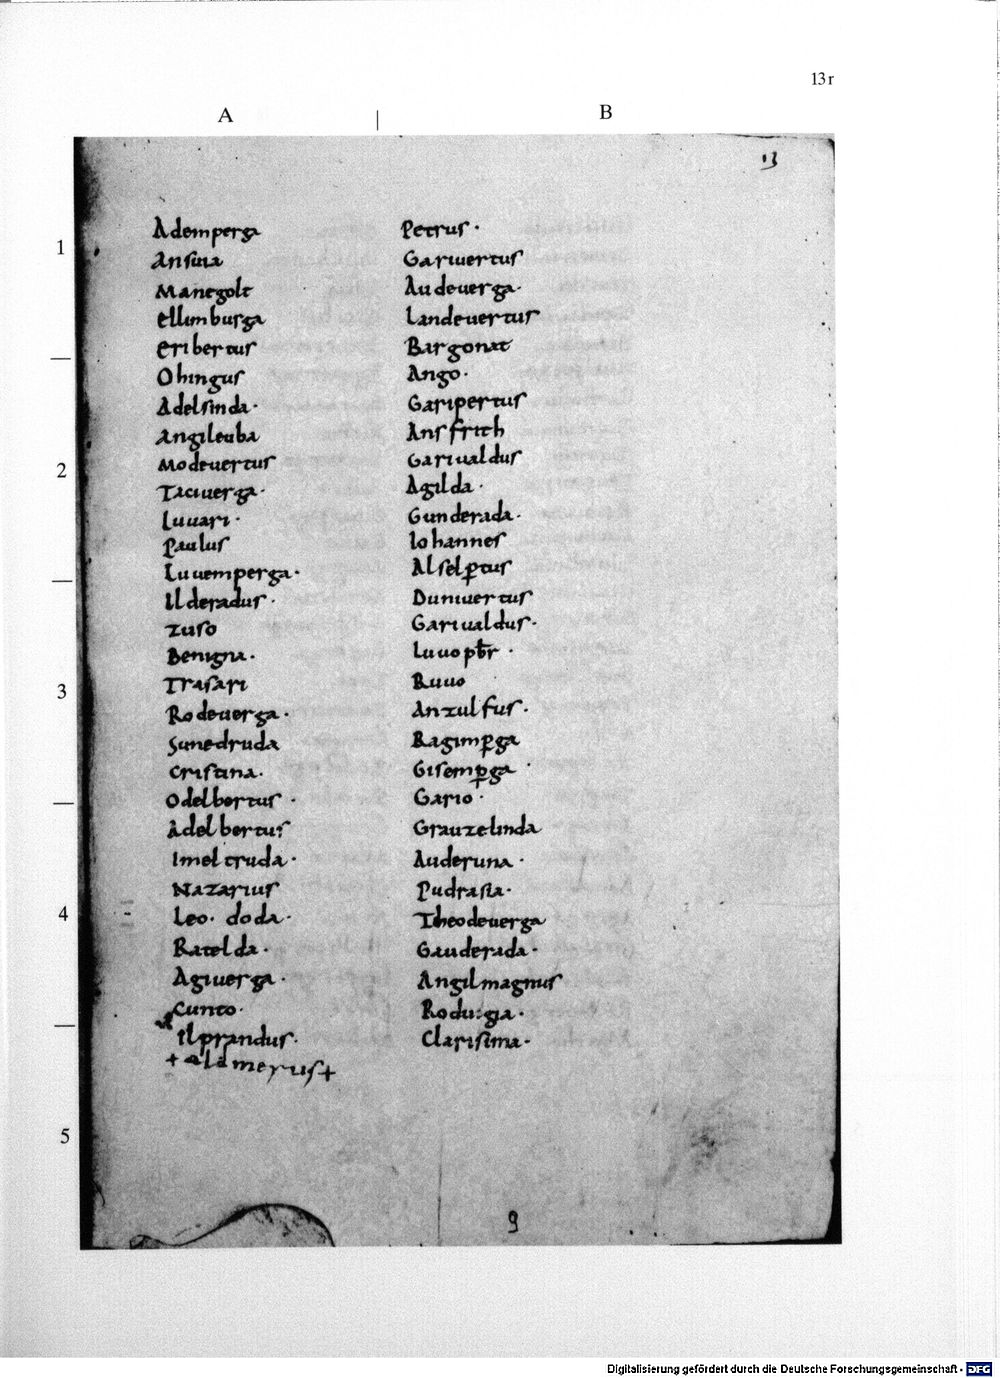 13r
A | B
13
1
2
3
4
5
Ademperga
Ansuia
Manegolt
Ellimburga
Eribertus
Ohingus
Adelsinda·
Angileuba
Modeuertus
Taciuerga·
Luuari·
Paulus
Luuemperga·
Ilderadus·
Zuso
Benigna·
Trasari
Rodeuerga·
Sunedruda
Cristina·
Odelbertus·
Adelbertus
Imeltruda·
Nazarius
Leo· doda·
Ratelda·
Agiuerga·
Cunto·
Ilprandus·
+ aldmerus+
Petrus·
Gariuertus
Audeuerga·
Landeuertus
Bargonat
Ango·
Garipertus
Ansfrith
Gariualdus
Agilda·
Gunderada·
Iohannes
Alselꝑtus
Duniuertus
Gariualdus·
Luuo pbr̄·
Ruuo
Anzulfus·
Ragimꝑga
Gisemꝑga·
Gario·
Grauzelinda
Auderuna·
Pudrasia·
Theodeuerga
Gauderada·
Angilmagnus
Clarisima·
9
Digitalisierung gefördert durch die Deutsche Forschungsgemeinschaft · DFG